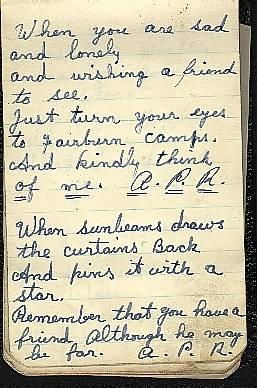 When you are sad
and lonely
and wishing a friend
to see.
Just turn your eyes
to Fairburn camps.
And kindly think
of me. A. P. R.
When sunbeams draws
the curtains Back
And pins it with a
star.
Remember that you have a
friend Although he may
be far. A. P. R.